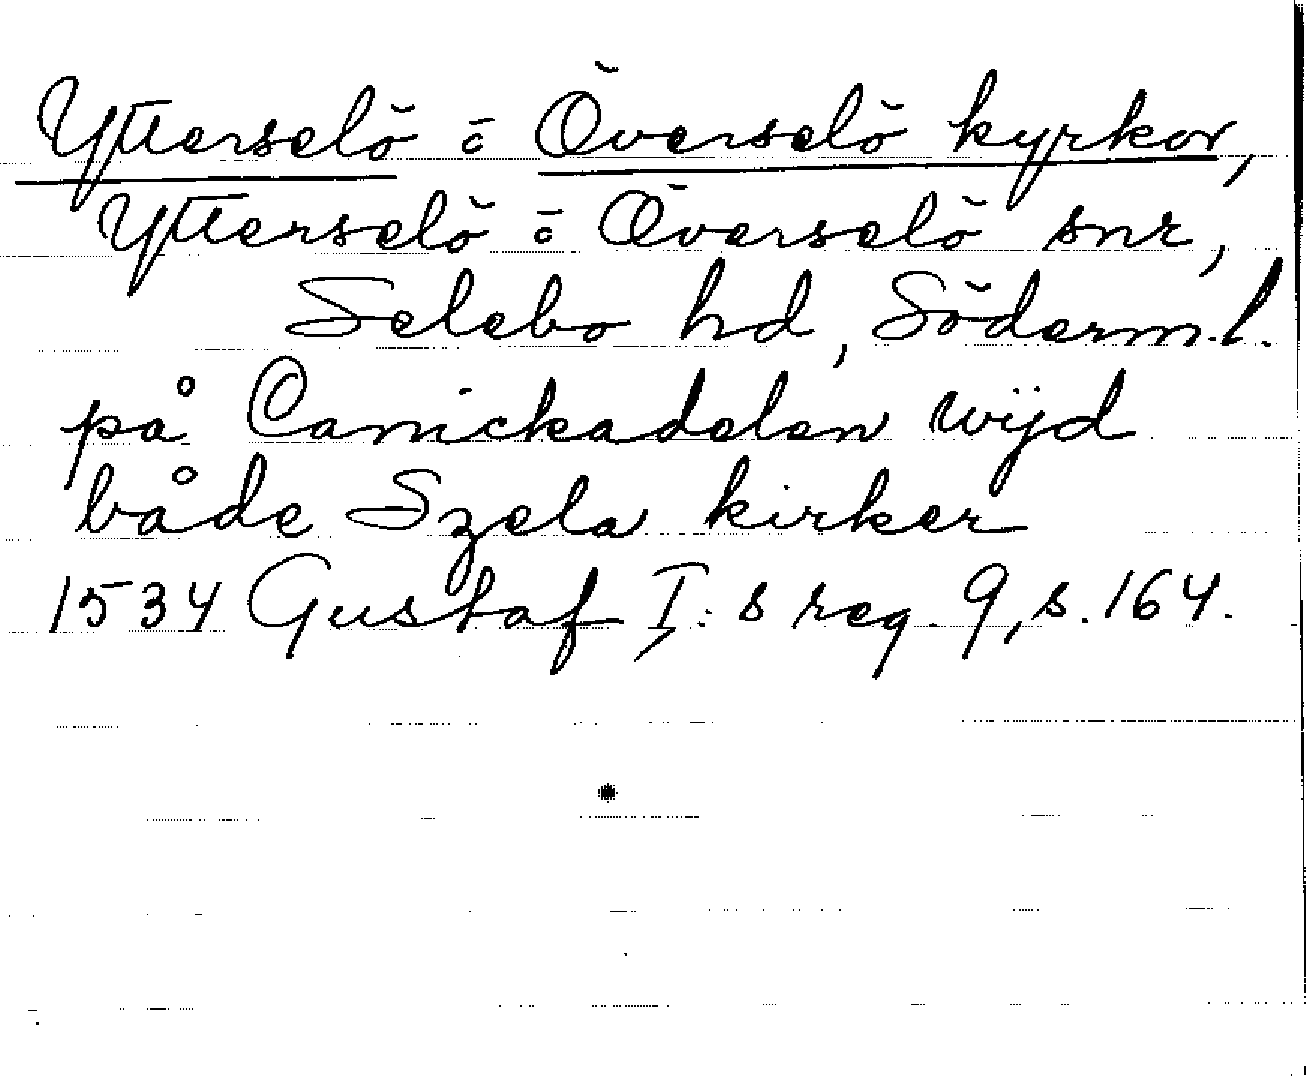 Ytterselö o Överselö kyrkor,
Ytterselö o Överselö snr,
Selebo hd, Söderm.l.
på Canickadelen wijd
både Szela kirker
1534 Gustaf I:s reg. 9, s. 164.